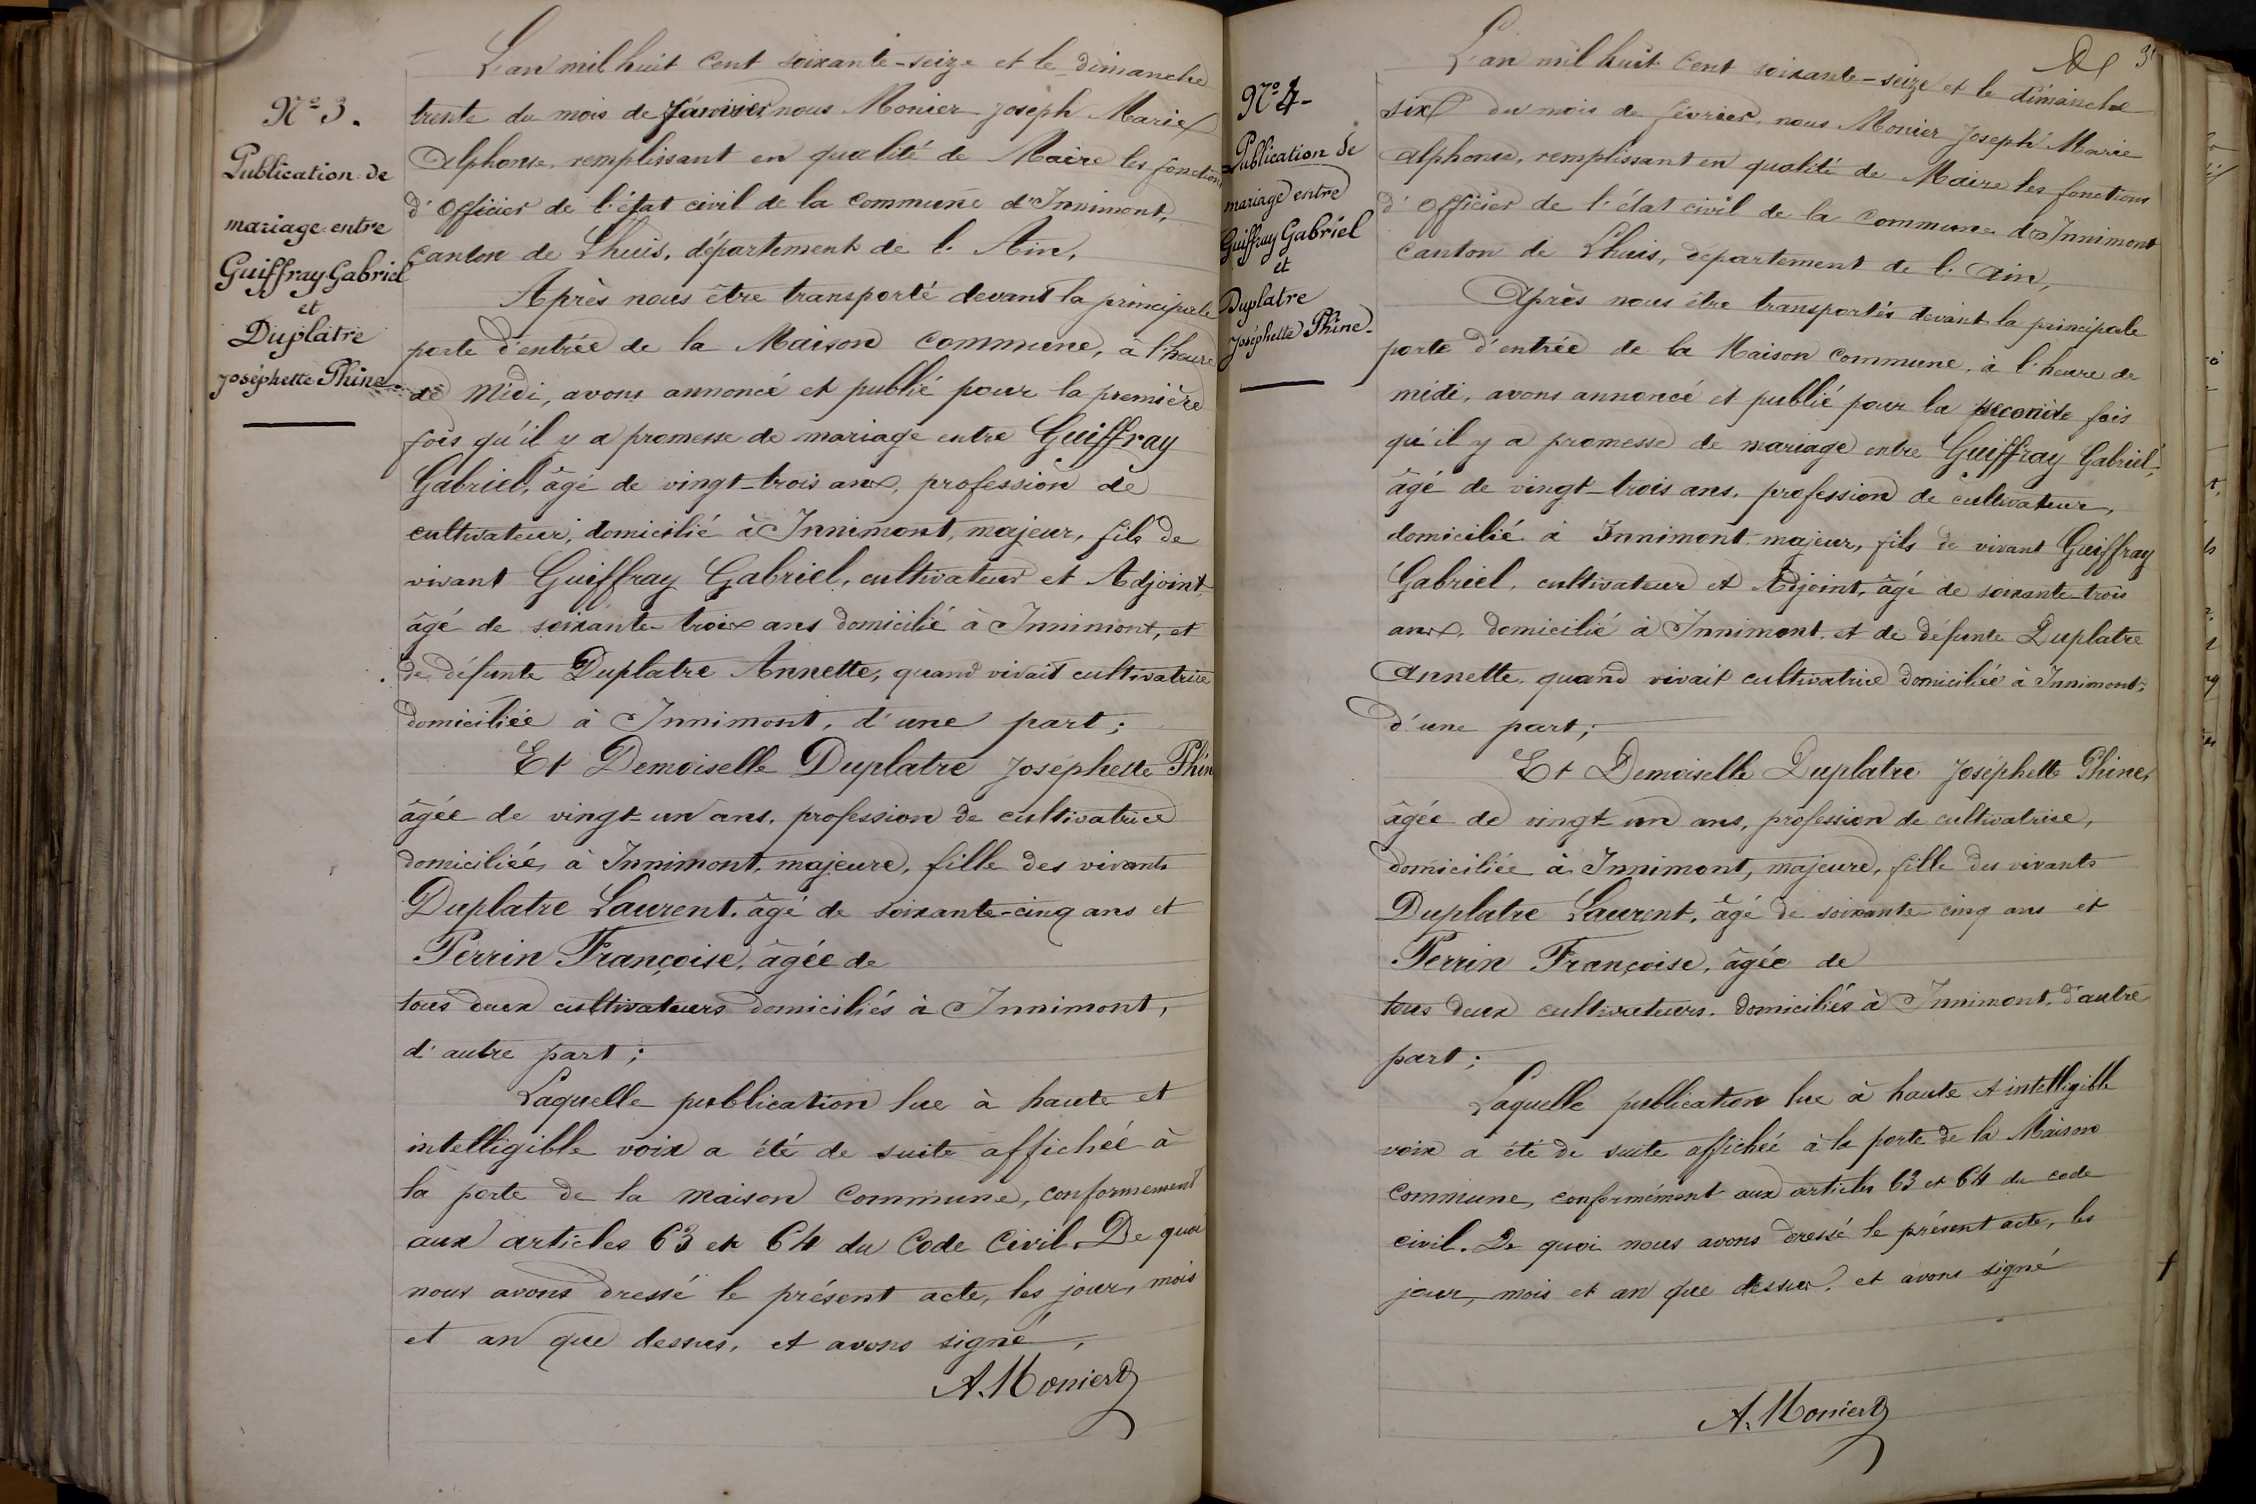 Nº 3.
Publication de
mariage entre
Guiffray Gabriel
et
Duplatre
Joséphette Phine.
L'an mil huit cent soixante-seize et le dimanche
trente du mois de Janvier, nous Monier Joseph Marie
Alphonse, remplissant en qualité de Maire les fonctions
d'Officier de l'état civil de la commune d'Innimont,
canton de Lhuis, département de l'Ain,
Après nous être transporté devant la principale
porte d'entrée de la Maison commune, à l'heure
de midi, avons annoncé et publié pour la première
fois qu'il y a promesse de mariage entre Guiffray
Gabriel, âgé de vingt-trois ans, profession de
cultivateur, domicilié à Innimont, majeur, fils de
vivant Guiffray Gabriel, cultivateur et Adjoint,
âgé de soixante-trois ans domicilié à Innimont, et
de défunte Duplatre Annette, quand vivait cultivatrice
domiciliée à Innimont, d'une part;
Et Demoiselle Duplatre Joséphette Phin
âgée de vingt-un ans, profession de cultivatrice
domiciliée à Innimont, majeure, fille des vivants
Duplatre Laurent, âgé de soixante-cinq ans et
Perrin Françoise, âgée de
tous deux cultivateurs domiciliés à Innimont,
d'autre part;
Laquelle publication lue à haute et
intelligible voix a été de suite affichée à
la porte de la maison commune, conformement
aux articles 63 et 64 du Code Civil. De quoi
nous avons dressé le présent acte, les jour, mois
et an que dessus, et avons signé,
A. Monier
31
Nº 4-
Publication de
mariage entre
Guiffray Gabriel
et
Duplatre
Joséphette Phine-
L'an mil huit cent soixante-seize et le dimanche
six du mois de février, nous Monier Joseph Marie
Alphonse, remplissant en qualité de Maire les fonctions
d'Officier de l'état civil de la commune d'Innimont
canton de Lhuis, département de l'Ain,
Après nous être transportés devant la principale
porte d'entrée de la Maison commune, à l'heure de
midi, avons annoncé et publié pour la seconde fois
qu'il y a promesse de mariage entre Guiffray Gabriel,
âgé de vingt-trois ans, profession de cultivateur,
domicilié à Innimont majeur, fils de vivant Guiffray
Gabriel, cultivateur et Adjoint, âgé de soixante-trois
ans, domicilié à Innimont, et de défunte Duplatre
Annette, quand vivait cultivatrice domiciliée à Innimont,
d'une part;
Et Demoiselle Duplatre Joséphette Phine,
âgée de vingt-un ans, profession de cultivatrice,
domiciliée à Innimont, majeure, fille des vivants
Duplatre Laurent, âgé de soixante cinq ans et
Perrin Françoise, âgée de
tous deux cultivateurs, domiciliés à Innimont, d'autre
part;
Laquelle publication lue à haute et intelligible
voix a été de suite affichée à la porte de la Maison
commune, conformément aux articles 63 et 64 du code
civil. De quoi nous avons dressé le présent acte, les
jour, mois et an que dessus, et avons signé
A. Monier